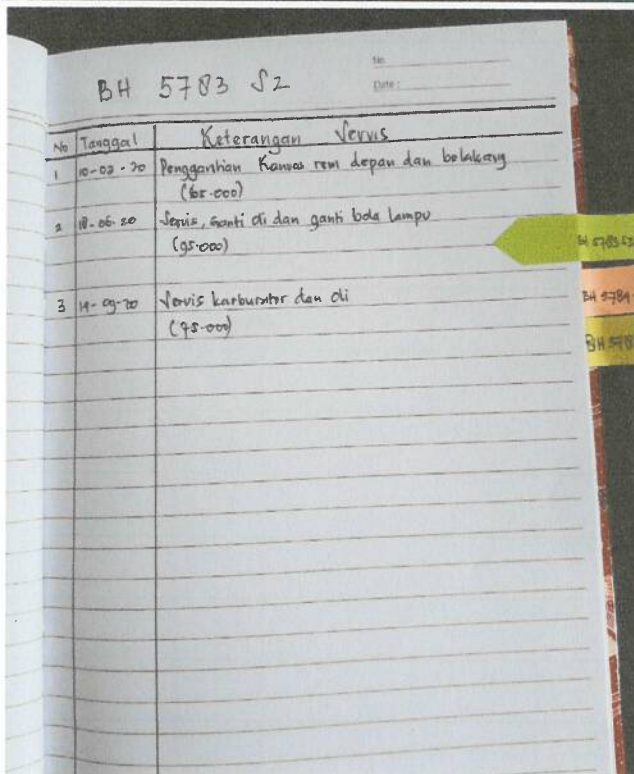 No
Date :
BH 5783 SZ
No Tanggal Keterangan Servis
1 10-02-20 Penggantian Kanvas rem depan dan belakang
(65.000)
2 18-06-20 Servis, Ganti oli dan ganti bola lampu
(95.000)
3 14-09-20 Servis karburator dan oli
(95.000)
BH 5783 SZ
BH 5784
BH 578